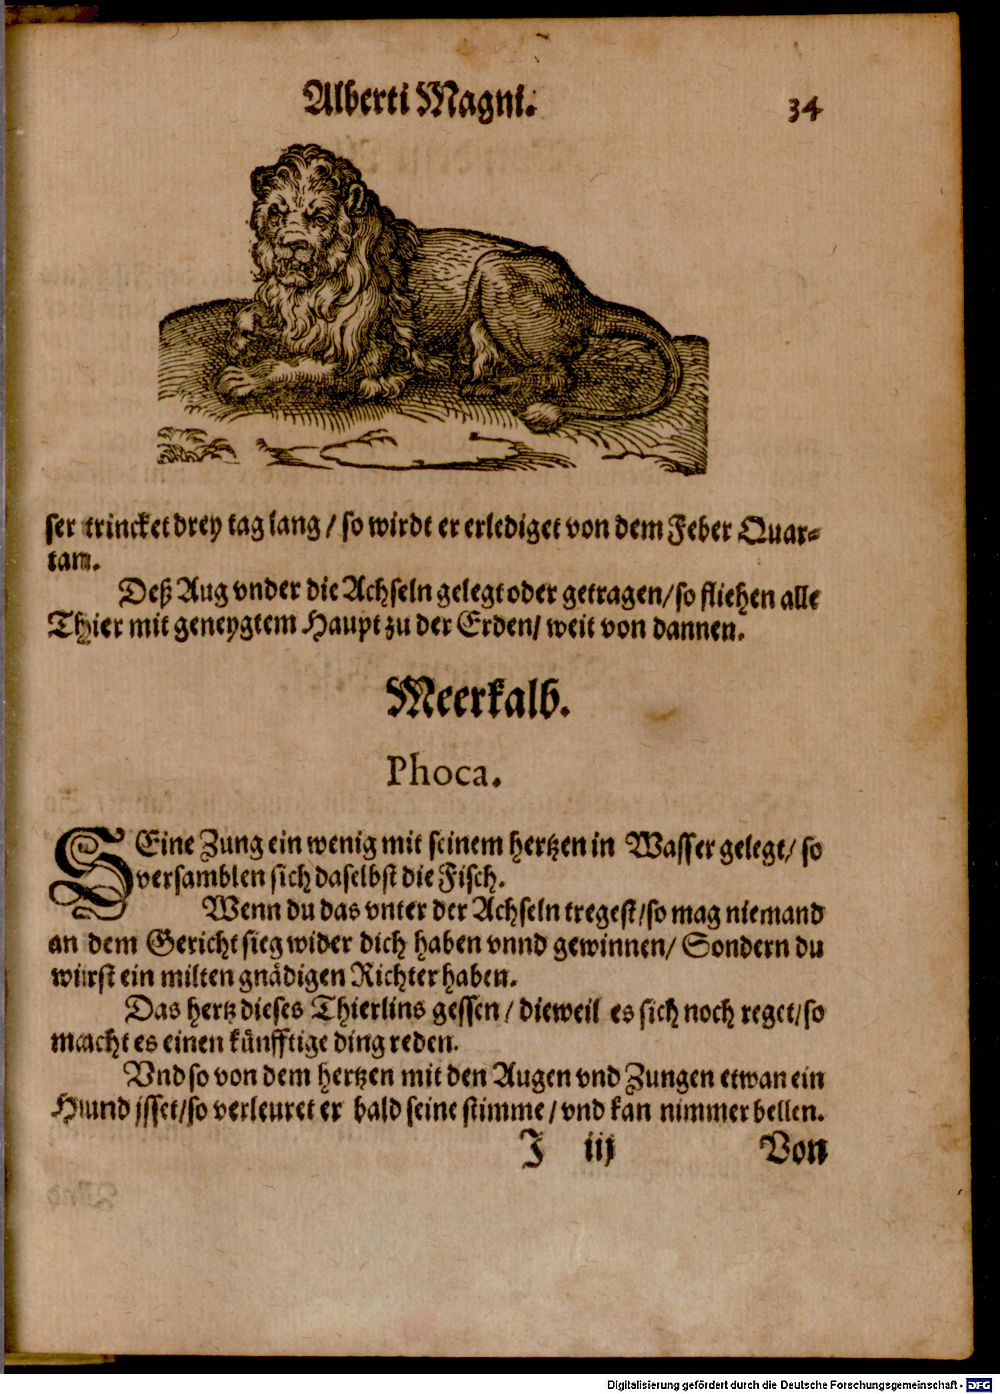 Alberti Magni.
34
ser trincket drey tag lang / so wirdt er erlediget von dem Feber Quar⸗
tam.
Deß Aug vnder die Achseln gelegt oder getragen / so fliehen alle
Thier mit geneygtem Haupt zu der Erden / weit von dannen.
Meerkalb.
Phoca.
SEine Zung ein wenig mit seinem hertzen in Wasser gelegt / so
versamblen sich daselbst die Fisch.
Wenn du das vnter der Achseln tregest / so mag niemand
an dem Gericht sieg wider dich haben vnnd gewinnen / Sondern du
würst ein milten gnädigen Richter haben.
Das hertz dieses Thierlins gessen / dieweil es sich noch reget / so
macht es einen künfftige ding reden.
Vnd so von dem hertzen mit den Augen vnd Zungen etwan ein
Hund jsset / so verleuret er bald seine stimme / vnd kan nimmer bellen.
J iij
Von
Digitalisierung gefördert durch die Deutsche Forschungsgemeinschaft - DFG